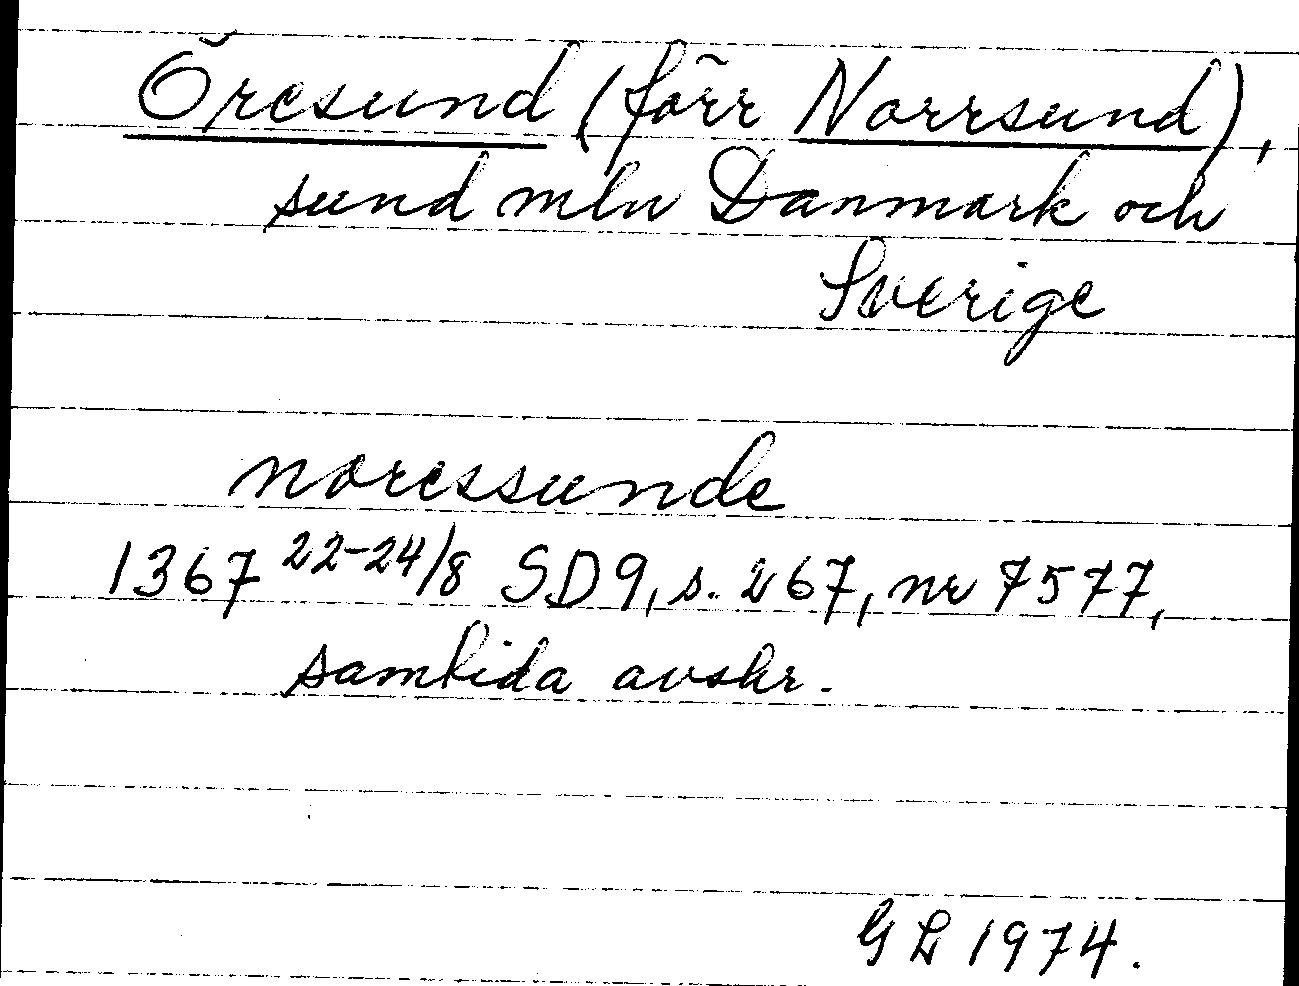 Öresund (förr Norrsund),
sund mln Danmark och
Sverige
noressunde
1367 22-24/8 SD9, s. 267, nr 7577,
samtida avskr.
GL 1974.